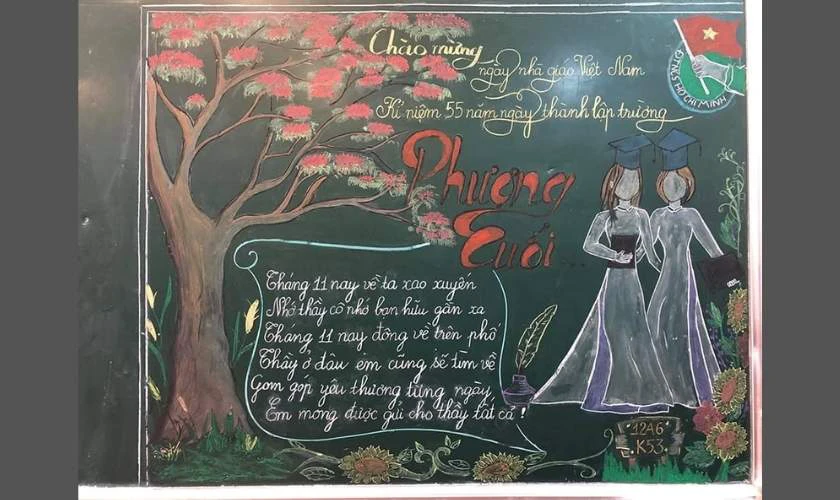 Chào mừng
ngày nhà giáo Việt Nam
Kỉ niệm 55 năm ngày thành lập trường
ĐTNCS HỒ CHÍ MINH
Phượng
Cuối...
Tháng 11 nay về ta xao xuyến
Nhớ thầy cô nhớ bạn hữu gần xa
Tháng 11 nay đông về trên phố
Thầy ở đâu em cũng sẽ tìm về
Gom góp yêu thương từng ngày
Em mong được gửi cho thầy tất cả !
12A6
K53